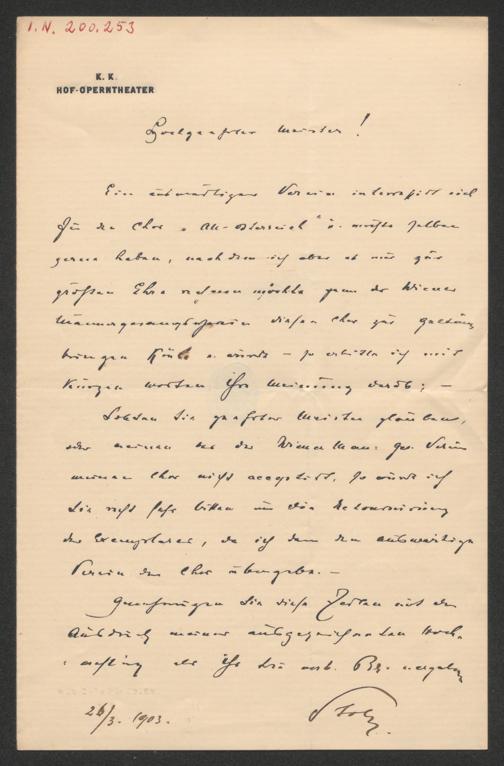 I.N. 200.253
K. K.
HOF-OPERNTHEATER
Hochgeehrter Meister!
Ein auswärtiger Verein interessirt sich
für den Chor „Alt-Österreich" u. möchte selben
gerne haben, nachdem ich aber es mir zur
größten Ehre rechnen möchte wenn der Wiener
Männergesangverein diesen Chor zur Geltung
bringen könnte u. würde – so erbitte ich mit
kurzen Worten Ihre Meinung darüb; –
Sollten Sie geehrter Meister glauben,
oder meinen daß der Wiener Män: ges. Verein
meinen Chor nicht acceptirt, so würde ich
Sie recht sehr bitten um die Retournirung
des Exemplares, da ich dann dem auswärtigen
Verein den Chor übergebe. –
Genehmigen Sie diese Zeilen mit dem
Ausdruck meiner ausgezeichneten Hoch-
achtung als Ihr Sie
26/3. 1903.
Stolz